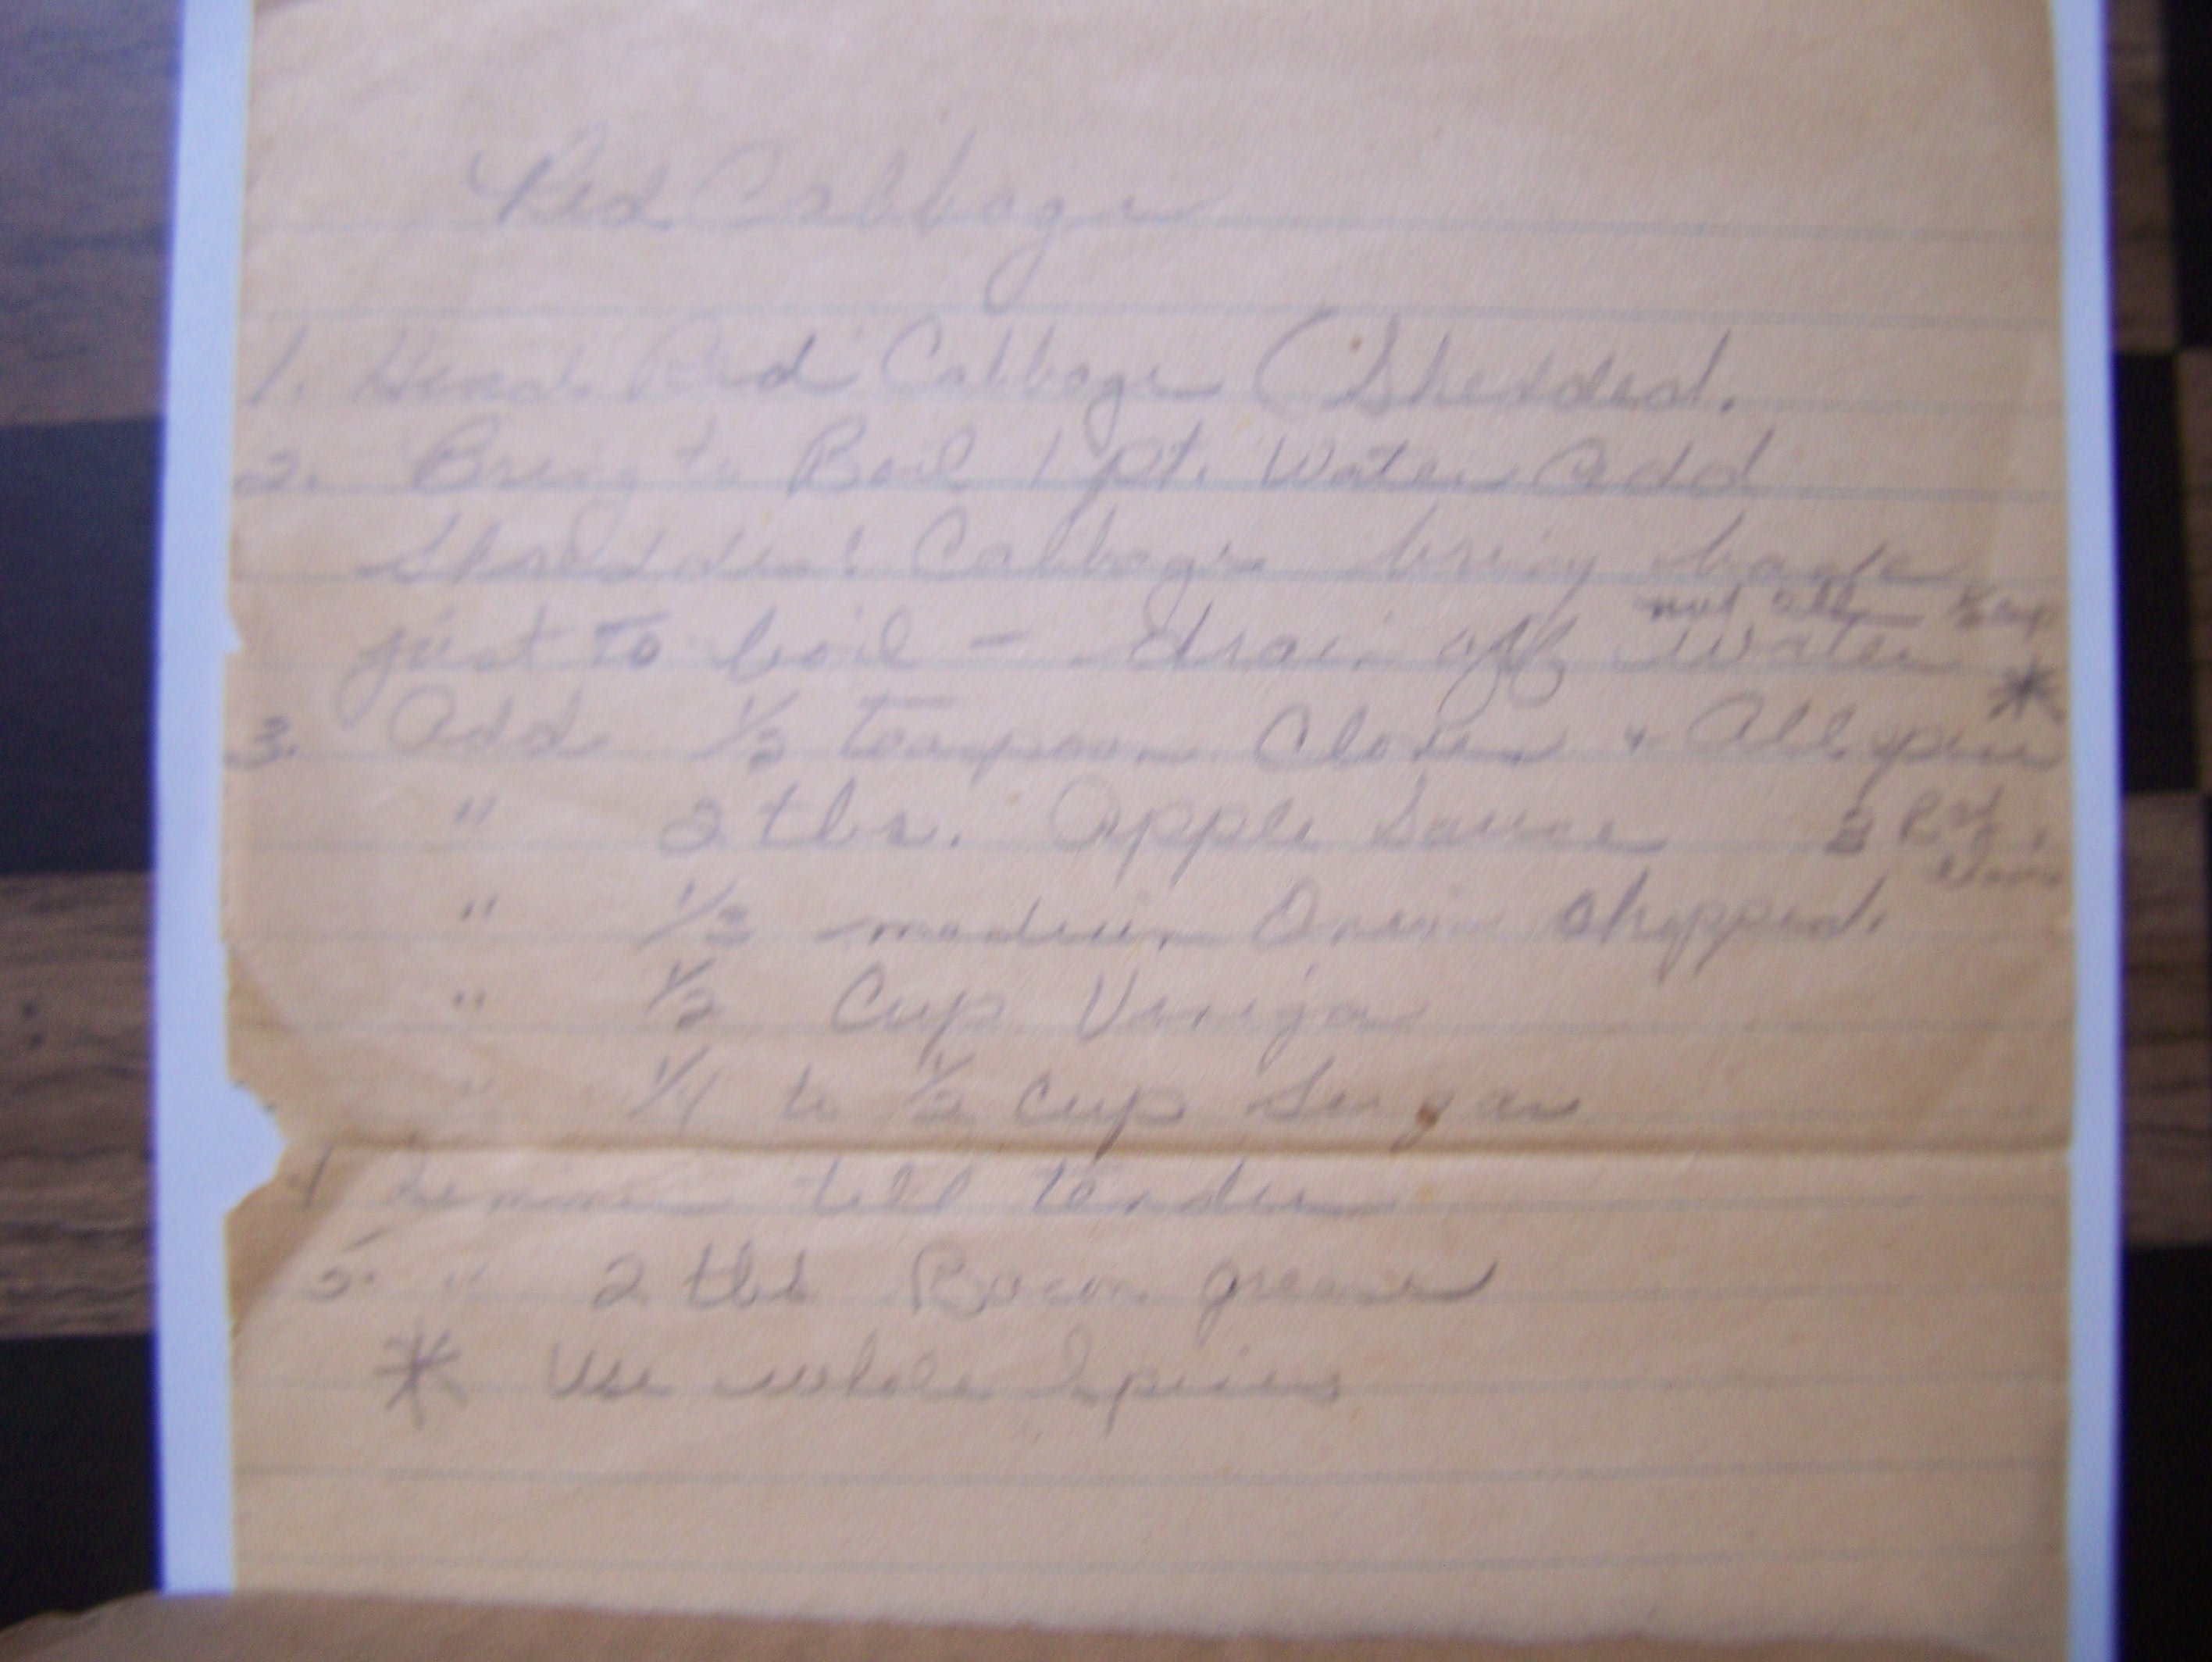 Red Cabbage
1. Head Red Cabbage (Shedded.
2. Bring to Boil 1 pt. Water add
Shredded Cabbage bring back
not all ½ cup
just to boil - drain off water
*
3. Add ½ teaspoon Cloves & Allspice
" 2 tbs. Apple Sauce 2 Red
" ½ medium Onion chopped.
" ½ Cup Vinigar
" ¼ to ½ cup Sugar
4 Simmer till tender
5. " 2 tbs Bacon grease
* Use whole Spices